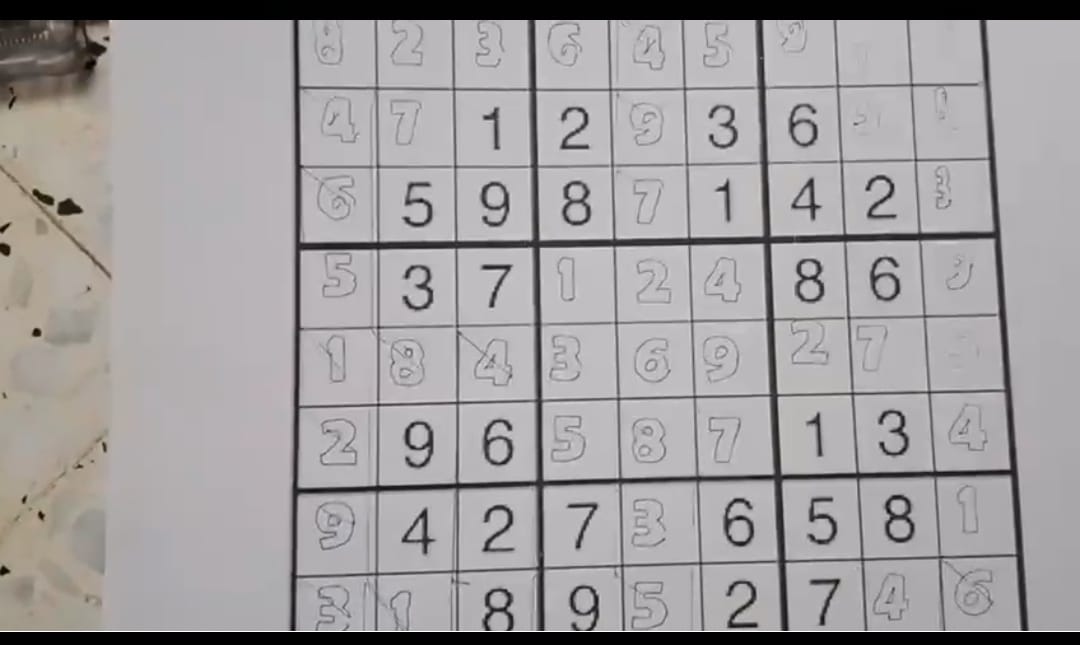 8 2 3 6 4 5 9
4 7 1 2 9 3 6
6 5 9 8 7 1 4 2 3
5 3 7 1 2 4 8 6 9
1 8 4 3 6 9 2 7
2 9 6 5 8 7 1 3 4
9 4 2 7 3 6 5 8 1
3 1 8 9 5 2 7 4 6